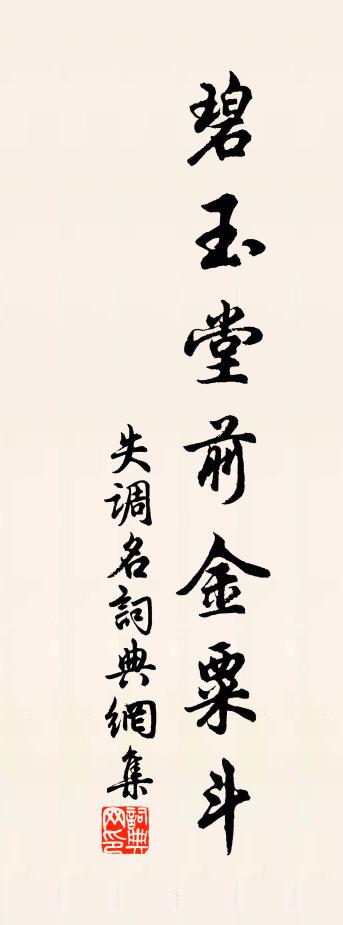 碧玉堂前金粟斗
失调名詞典網集
詞典网印